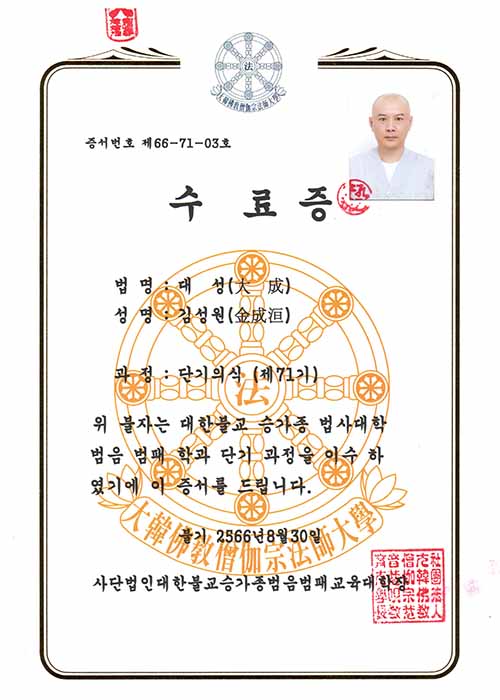 大韓佛敎僧伽宗法師大學
法
증서번호 제66-71-03호
수 료 증
법 명 : 대 성(大 成)
성 명 : 김성원(金成洹)
과 정 : 단기의식 (제71기)
위 불자는 대한불교 승가종 법사대학
범음 범패 학과 단기 과정을 이수 하
였기에 이 증서를 드립니다.
法
大韓佛敎僧伽宗法師大學
불기 2566년8월30일
사단법인대한불교승가종범음범패교육대학장